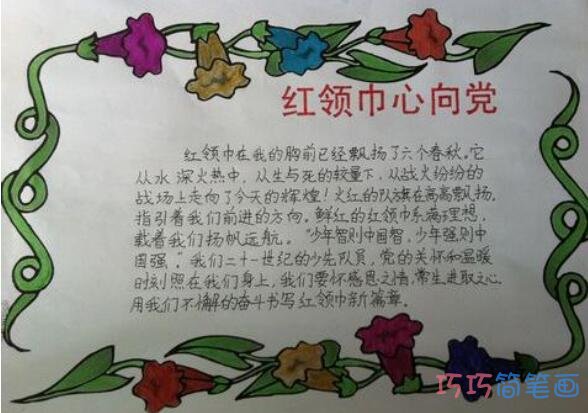 红领巾心向党
红领巾在我的胸前已经飘扬了六个春秋。它
从水深火热中，从生与死的较量下，从战火纷纷的
战场上走向了今天的辉煌！火红的队旗在高高飘扬，
指引着我们前进的方向，鲜红的红领巾系满理想，
载着我们扬帆远航。“少年智则中国智，少年强则中
国强。”我们二十一世纪的少先队员，党的关怀和温暖
时刻照在我们身上，我们要怀感恩之情，常生进取之心，
用我们不懈的奋斗书写红领巾新篇章。
巧巧简笔画